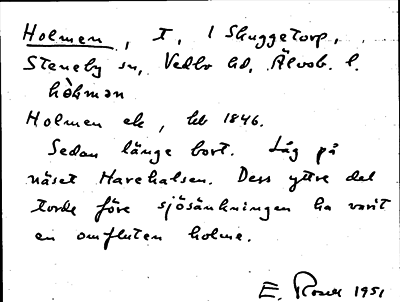 Holmen, t, 1 Skuggetorp,
Steneby sn, Vedbo hd, Älvsb. l.
hòlmən
Holmen ek, hb 1846.
Sedan länge bort. Låg på
näset Harehalsen. Dess yttre del
torde före sjösänkningen ha varit
en omfluten holme.
E. Rosell 1951